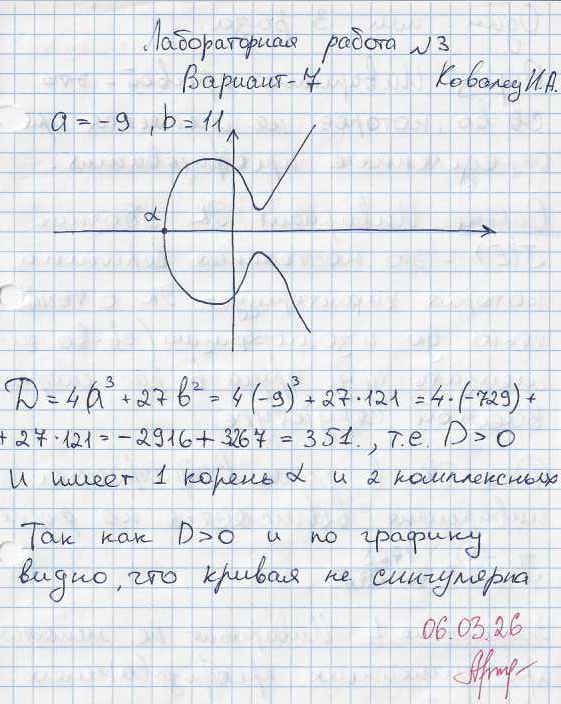 Лабораторная работа №3
Вариант-7 Ковалец И.А.
a = -9 , b = 11
α
D = 4a³ + 27b² = 4(-9)³ + 27·121 = 4·(-729) +
+ 27·121 = -2916 + 3267 = 351. , т.е. D > 0
И имеет 1 корень α и 2 комплексных
Так как D>0 и по графику
видно, что кривая не сингулярна
06.03.26